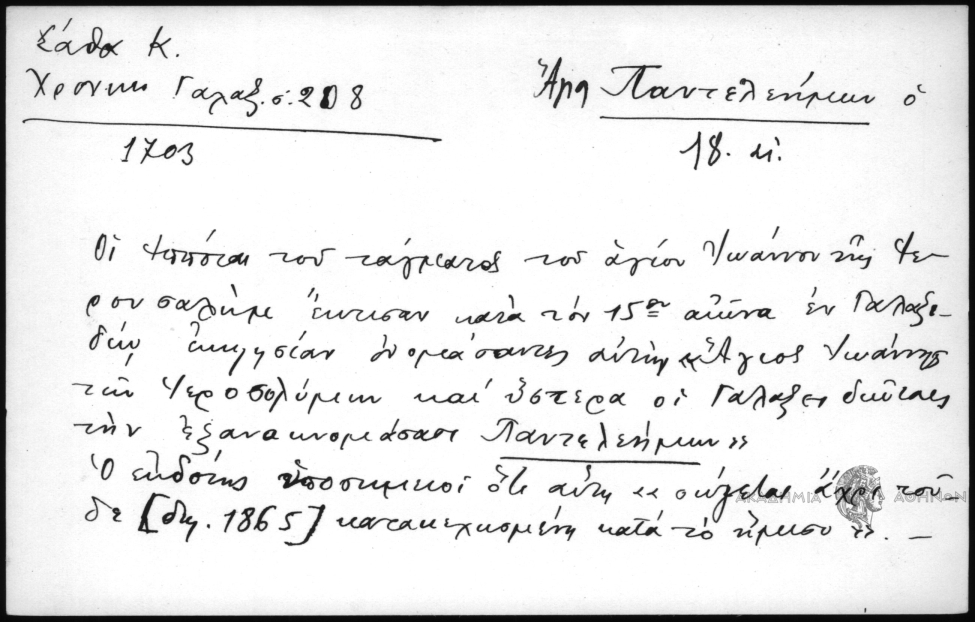 Σάθα Κ.
Χρονικὸ Γαλαξ. σ. 208
1703
Ἅγιος Παντελεήμων ὁ
18. αἰ.
Οἱ Ἱππόται τοῦ τάγματος τοῦ ἁγίου Ἰωάννου τῆς Ἱε-
ρουσαλὴμ ἔκτισαν κατὰ τὸν 15ον αἰῶνα ἐν Γαλαξει-
δίῳ ἐκκλησίαν ὀνομάσαντες αὐτὴν «Ἅγιος Ἰωάννης
τῶν Ἱεροσολύμων καὶ ὕστερα οἱ Γαλαξειδιῶται
τὴν ἐξανακνομάσασι Παντελεήμων»
Ὁ ἐκδότης ὑποσημειοῖ ὅτι αὕτη «σώζεται ἄχρι τοῦ-
δε [δηλ. 1865] κατακεχωσμένη κατὰ τὸ ἥμισυ». –
ΑΚΑΔΗΜΙΑ ΑΘΗΝΩΝ